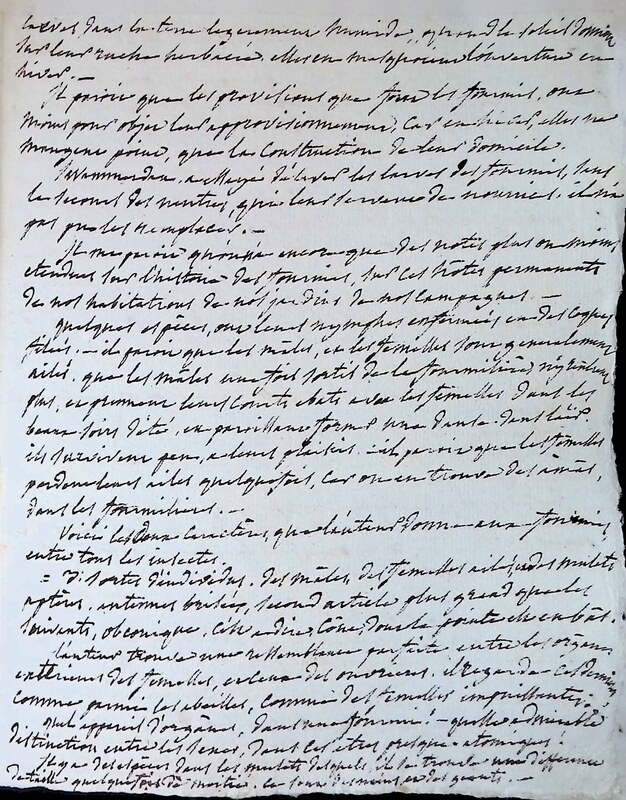 larves dans la terre legerement humide, quand le soleil domine
sur leur ruche herbacée. elles en masquoient l'ouverture en
hiver. —
Il paroit que les provisions que font les fourmis, ont
moins pour objet leur approvisionnement, car en hiver, elles ne
mangent point, que la construction de leur domicile.
a essayé d'élever les larves des fourmis, sans
le secours des neutres, qui leur servent de nourrices. il n'a
pas pu les remplacer. —
Il me paroit qu'on n'a encore que des notes plus ou moins
etendues sur l'histoire des fourmis, sur ces hôtes permanents
de nos habitations de nos jardins de nos campagnes. —
quelques espèces, ont leurs nymphes enfermées en des coques
filées. — il paroit que les mâles, et les femelles sont generalement
ailés. que les mâles une fois sortis de la fourmilière, n'y rentrent
plus, et prennent leurs courts ebats avec les femelles dans les
beaux jours d'été, et paroissent former une danse dans l'air
ils survivent peu, a leurs plaisirs. — il paroit que les femelles
perdent leurs ailes quelquefois, car on en trouve des amas,
dans les fourmilières. —
Voici les deux caractères, que l'auteur donne aux fourmis,
entre tous les insectes.
= 3 sortes d'individus. des mâles, des femelles ailés, et des mulets
aptères. antennes brisées, second article plus grand que les
suivants, obconique, c'est a dire, cône, dont la pointe est en bas.
l'auteur trouve une ressemblance parfaite entre les organes
exterieurs des femelles, et ceux des ouvrieres. il regarde ces dernieres
comme parmi les abeilles, comme des femelles impuissantes. —
quel appareil d'organes, dans une fourmi! — quelle admirable
distinction entre les sexes, dans ces etres presque atomiques!
Il y a des espèces dans les mulets desquels, il se trouve une difference
de taille quelquefois de moitié. ce sont des nains, et des geants. —